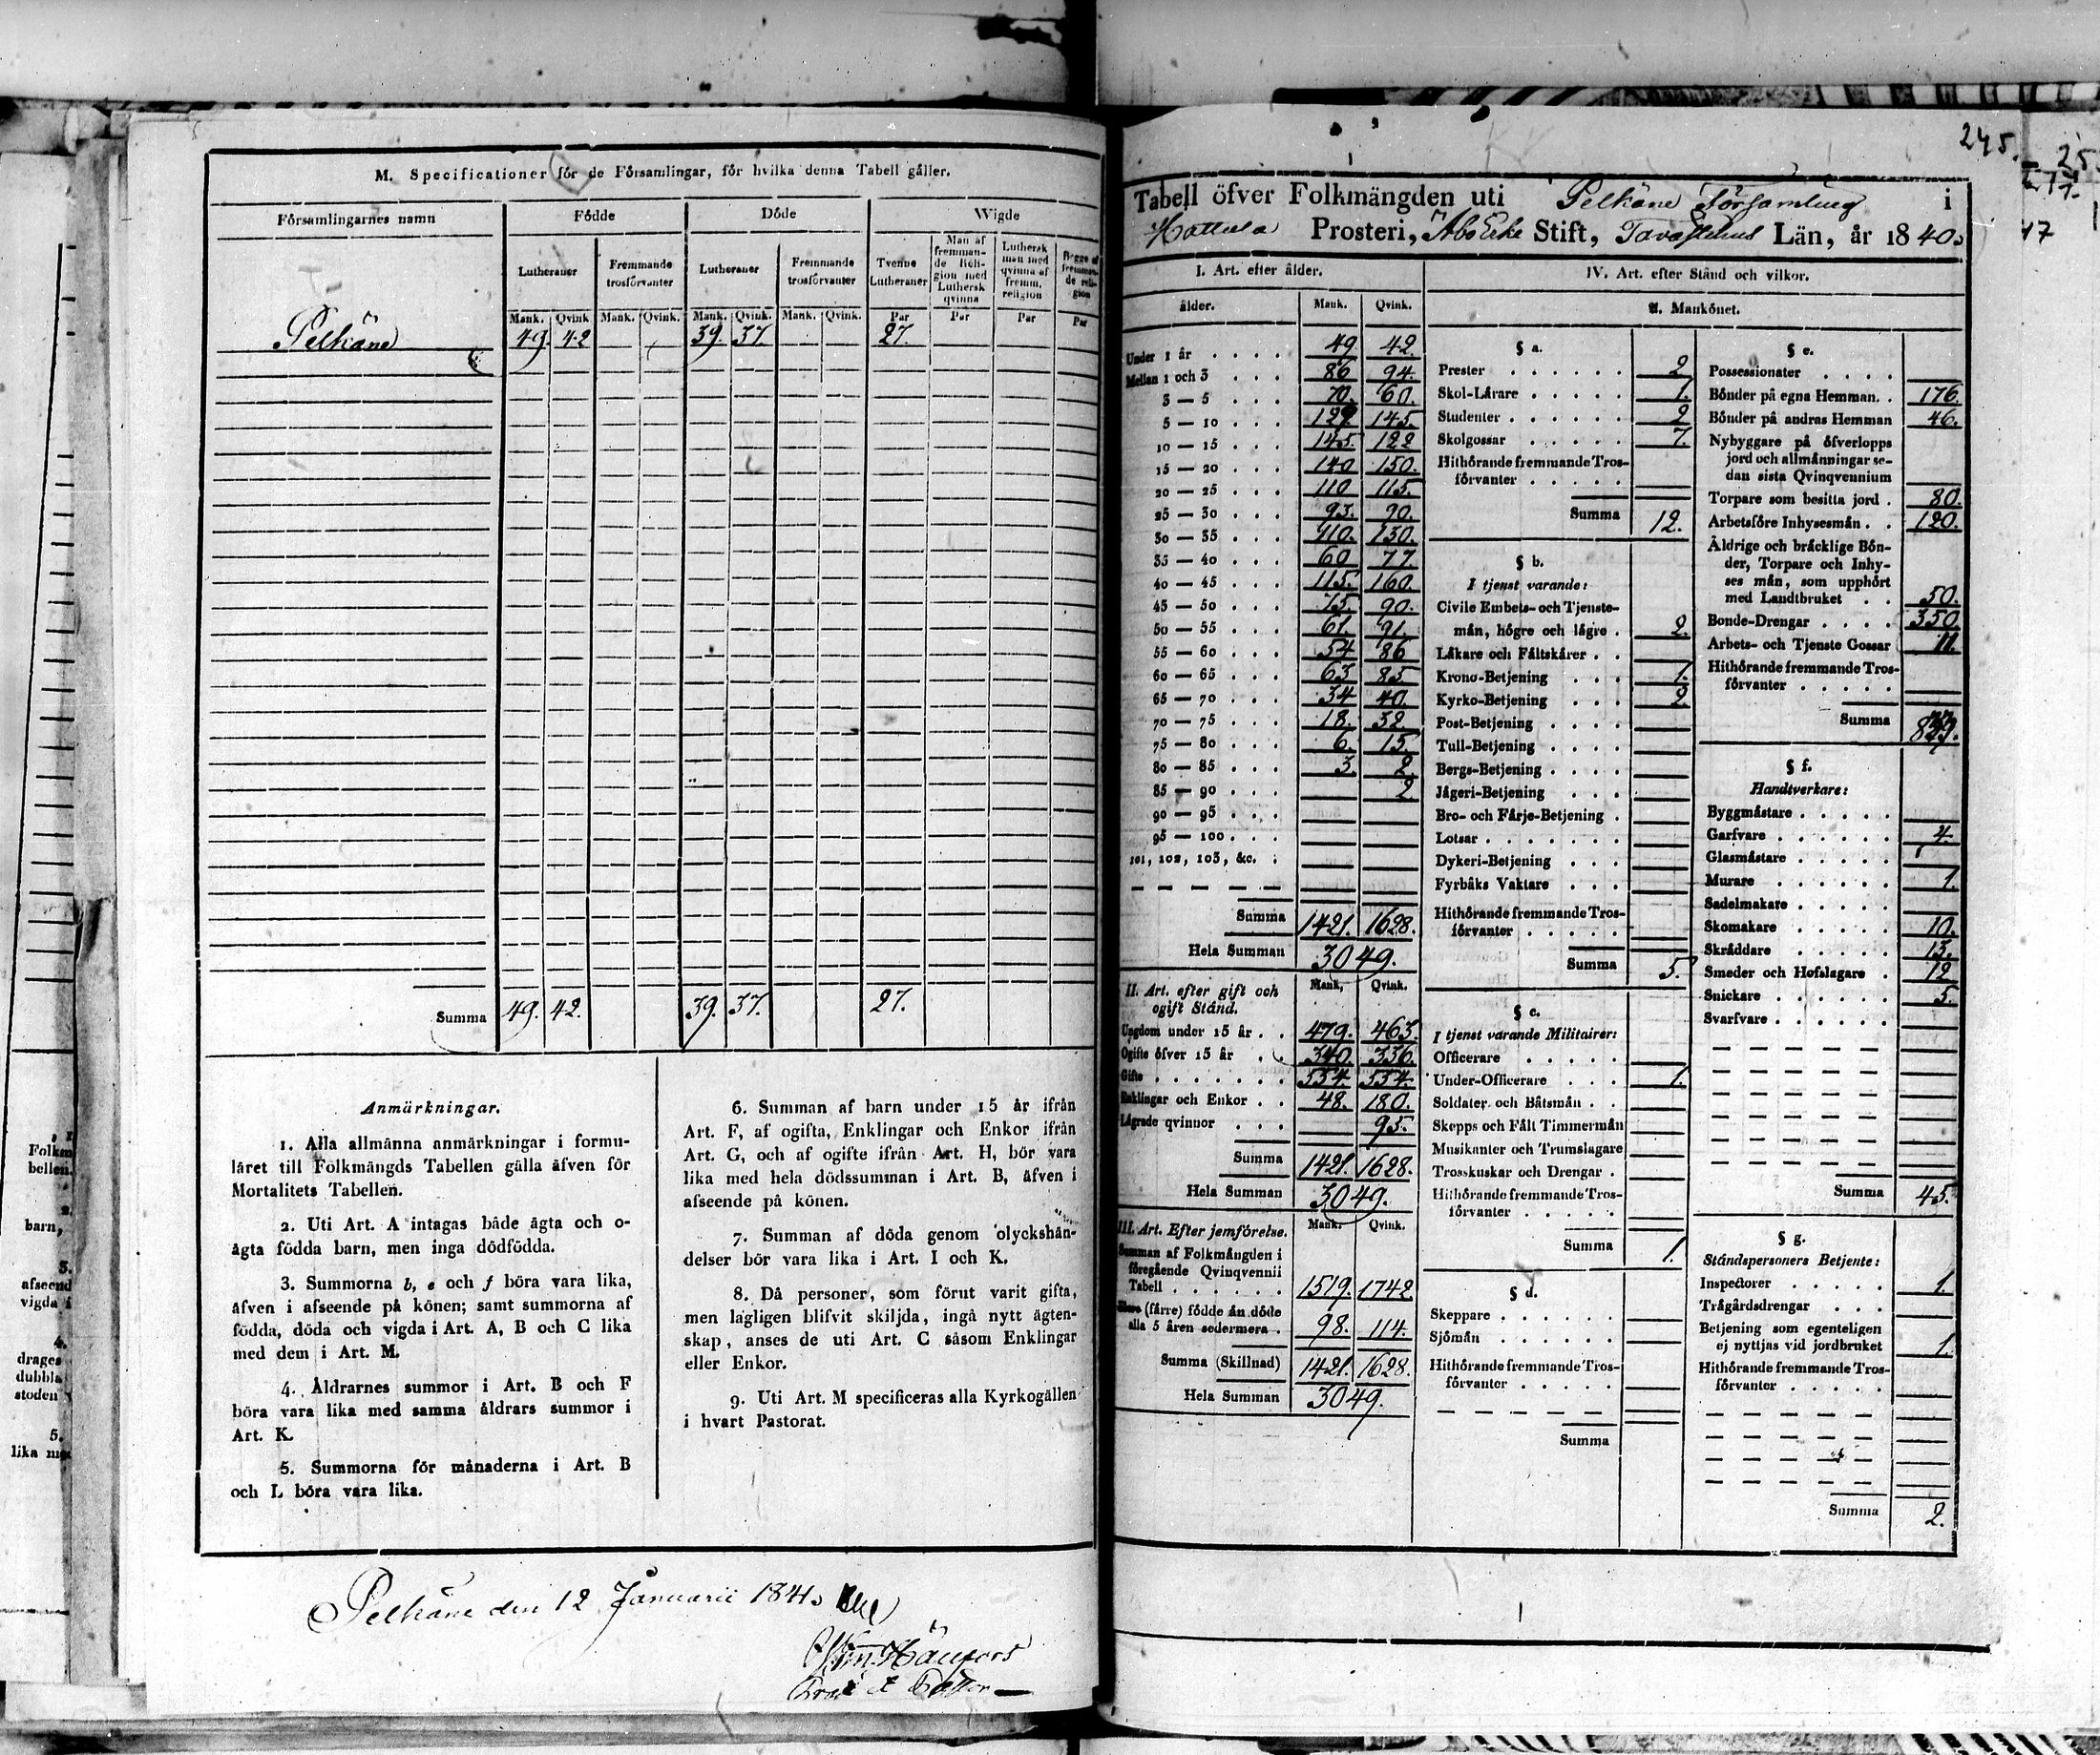 M. Specificationer för de Församlingar, för hvilka denna Tabell gäller.
Församlingarnes namn Födde Döde Wigde
Lutheraner Fremmande trosförvanter Lutheraner Fremmande trosförvanter Tvenne Lutheraner Man af fremmande Religion med Luthersk qvinna Luthersk man med qvinna af fremm. religion Begge af fremmande religion
Mank. Qvink. Mank. Qvink. Mank. Qvink. Mank. Qvink. Par Par Par Par
Pelkäne 49. 42 39. 37. 27.
Summa 49. 42. 39. 37. 27.
Anmärkningar.
1. Alla allmänna anmärkningar i formu-
läret till Folkmängds Tabellen gälla äfven för
Mortalitets Tabellen.
2. Uti Art. A intagas både ägta och o-
ägta födda barn, men inga dödfödda.
3. Summorna b, e och f böra vara lika,
äfven i afseende på könen; samt summorna af
födda, döda och vigda i Art. A, B och C lika
med dem i Art. M.
4. Åldrarnes summor i Art. B och F
böra vara lika med samma åldrars summor i
Art. K.
5. Summorna för månaderna i Art. B
och L böra vara lika.
6. Summan af barn under 15 år ifrån
Art. F, af ogifta, Enklingar och Enkor ifrån
Art. G, och af ogifte ifrån Art. H, bör vara
lika med hela dödssumman i Art. B, äfven i
afseende på könen.
7. Summan af döda genom olyckshän-
delser bör vara lika i Art. I och K.
8. Då personer, som förut varit gifta,
men lagligen blifvit skiljda, ingå nytt ägten-
skap, anses de uti Art. C såsom Enklingar
eller Enkor.
9. Uti Art. M specificeras alla Kyrkogällen
i hvart Pastorat.
Pelkäne den 12 Januarii 1841.
245.
Tabell öfver Folkmängden uti Pelkäne Församling i
Hattula Prosteri, Åbo Erke Stift, Tavastehus Län, år 1840.
I. Art. efter ålder.
ålder. Mank. Qvink.
Under 1 år 49 42.
Mellan 1 och 3 86 94.
3 — 5 70. 60.
5 — 10 129 145.
10 — 15 145. 122
15 — 20 140 150.
20 — 25 110 115.
25 — 30 93. 90.
30 — 35 110. 130.
35 — 40 60 77.
40 — 45 115. 160.
45 — 50 75. 90.
50 — 55 61. 91.
55 — 60 54 86
60 — 65 63 85.
65 — 70 34 40.
70 — 75 18. 32.
75 — 80 6. 15.
80 — 85 3. 2.
85 — 90 2
90 — 95
95 — 100
101, 102, 103, &c.
Summa 1421. 1628.
Hela Summan 3049.
II. Art. efter gift och ogift Stånd. Mank. Qvink.
Ungdom under 15 år 479. 463.
Ogifte öfver 15 år 340. 336.
Gifte 554. 554.
Enklingar och Enkor 48. 180.
Lägrade qvinnor 95.
Summa 1421. 1628.
Hela Summan 3049.
III. Art. Efter jemförelse. Mank. Qvink.
Summan af Folkmängden i
föregående Qvinqvennii
Tabell 1519. 1742
(färre) födde än döde
alla 5 åren sedermera 98. 114.
Summa (Skillnad) 1421. 1628.
Hela Summan 3049.
IV. Art. efter Stånd och vilkor.
A. Mankönet.
§ a.
Prester 2
Skol-Lärare 1.
Studenter 2
Skolgossar 7.
Hithörande fremmande Tros-
förvanter
Summa 12.
§ b.
I tjenst varande:
Civile Embets- och Tjenste-
män, högre och lägre 2.
Läkare och Fältskärer
Krono-Betjening 1.
Kyrko-Betjening 2
Post-Betjening
Tull-Betjening
Bergs-Betjening
Jägeri-Betjening
Bro- och Färje-Betjening
Lotsar
Dykeri-Betjening
Fyrbåks Vaktare
Hithörande fremmande Tros-
förvanter
Summa 5.
§ c.
I tjenst varande Militairer:
Officerare
Under-Officerare 1.
Soldater och Båtsmän
Skepps och Fält Timmermän
Musikanter och Trumslagare
Trosskuskar och Drengar
Hithörande fremmande Tros-
förvanter
Summa 1.
§ d.
Skeppare
Sjömän
Hithörande fremmande Tros-
förvanter
Summa
§ e.
Possessionater
Bönder på egna Hemman 176.
Bönder på andras Hemman 46.
Nybyggare på öfverlopps
jord och allmänningar se-
dan sista Qvinqvennium
Torpare som besitta jord 80.
Arbetsföre Inhysesmän 120.
Äldrige och bräcklige Bön-
der, Torpare och Inhy-
ses män, som upphört
med Landtbruket 50.
Bonde-Drengar 350
Arbets- och Tjenste Gossar
Hithörande fremmande Tros-
förvanter
Summa
§ f.
Handtverkare:
Byggmästare
Garfvare 4.
Glasmästare
Murare 1.
Sadelmakare
Skomakare 10.
Skräddare 13.
Smeder och Hofslagare 12
Snickare 5.
Svarfvare
Summa 45.
§ g.
Ståndspersoners Betjente:
Inspectorer 1.
Trägårdsdrengar
Betjening som egenteligen
ej nyttjas vid jordbruket 1.
Hithörande fremmande Tros-
förvanter
Summa 2.